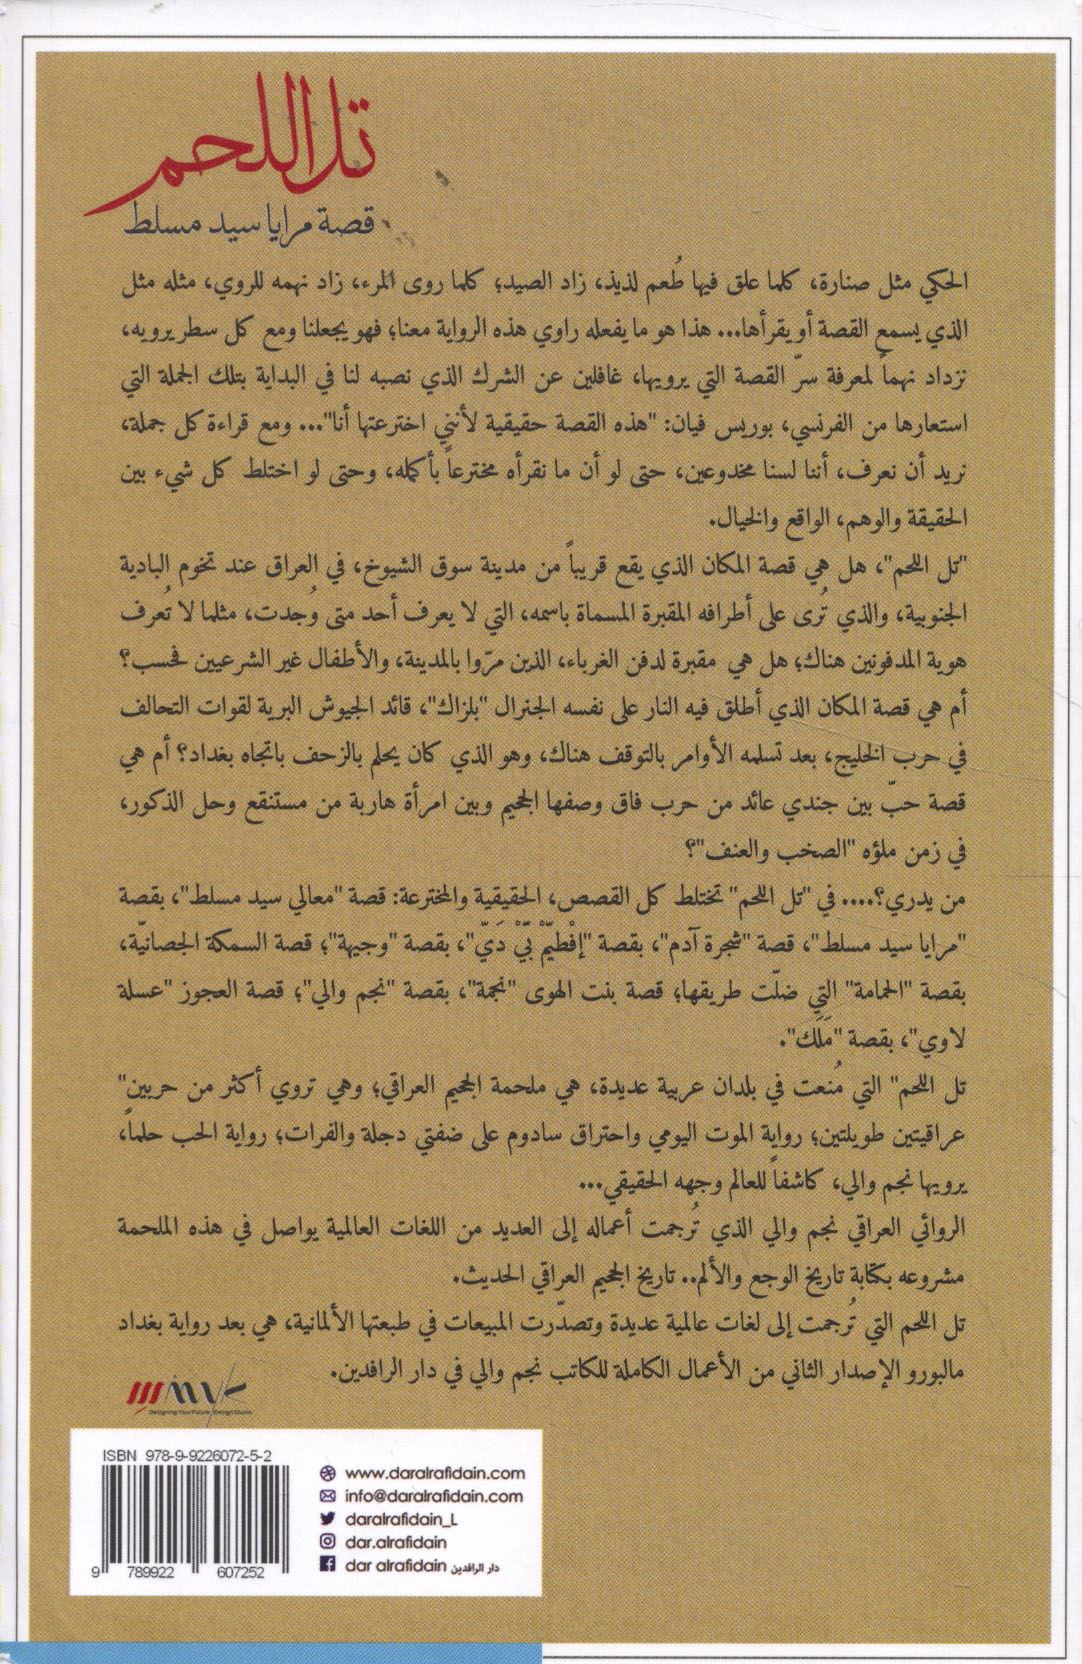 تل اللحم
قصة مرايا سيد مسلط
الحكي مثل صنارة، كلما علق فيها طُعم لذيذ، زاد الصيد؛ كلما روى المرء، زاد نهمه للروي، مثله مثل
الذي يسمع القصة أو يقرأها... هذا هو ما يفعله راوي هذه الرواية معنا؛ فهو يجعلنا ومع كل سطر يرويه،
نزداد نهماً لمعرفة سرّ القصة التي يرويها، غافلين عن الشرك الذي نصبه لنا في البداية بتلك الجملة التي
استعارها من الفرنسي، بوريس فيان: "هذه القصة حقيقية لأنني اخترعتها أنا"... ومع قراءة كل جملة،
نريد أن نعرف، أننا لسنا مخدوعين، حتى لو أن ما نقرأه مخترعاً بأكمله، وحتى لو اختلط كل شيء بين
الحقيقة والوهم، الواقع والخيال.
"تل اللحم"، هل هي قصة المكان الذي يقع قريباً من مدينة سوق الشيوخ، في العراق عند تخوم البادية
الجنوبية، والذي تُرى على أطرافه المقبرة المسماة باسمه، التي لا يعرف أحد متى وُجدت، مثلما لا تُعرف
هوية المدفونين هناك؛ هل هي مقبرة لدفن الغرباء، الذين مرّوا بالمدينة، والأطفال غير الشرعيين فحسب؟
أم هي قصة المكان الذي أطلق فيه النار على نفسه الجنرال "بلزاك"، قائد الجيوش البرية لقوات التحالف
في حرب الخليج، بعد تسلمه الأوامر بالتوقف هناك، وهو الذي كان يحلم بالزحف باتجاه بغداد؟ أم هي
قصة حبّ بين جندي عائد من حرب فاق وصفها الجحيم وبين امرأة هاربة من مستنقع وحل الذكور،
في زمن ملؤه "الصخب والعنف"؟
من يدري؟.... في "تل اللحم" تختلط كل القصص، الحقيقية والمخترعة: قصة "معالي سيد مسلط"، بقصة
"مرايا سيد مسلط"، قصة "شجرة آدم"، بقصة "إفْطيّمْ بّيْ دَيّ"، بقصة "وجيهة"؛ قصة السمكة الحصانيّة،
بقصة "الحمامة" التي ضلّت طريقها؛ قصة بنت الهوى "نجمة"، بقصة "نجم والي"؛ قصة العجوز "عسلة
لاوي"، بقصة "مَلَك".
تل اللحم" التي مُنعت في بلدان عربية عديدة، هي ملحمة الجحيم العراقي؛ وهي تروي أكثر من حربين"
عراقيتين طويلتين؛ رواية الموت اليومي واحتراق سادوم على ضفتي دجلة والفرات؛ رواية الحب حلماً،
يرويها نجم والي، كاشفاً للعالم وجهه الحقيقي...
الروائي العراقي نجم والي الذي تُرجمت أعماله إلى العديد من اللغات العالمية يواصل في هذه الملحمة
مشروعه بكتابة تاريخ الوجع والألم.. تاريخ الجحيم العراقي الحديث.
تل اللحم التي تُرجمت إلى لغات عالمية عديدة وتصدّرت المبيعات في طبعتها الألمانية، هي بعد رواية بغداد
مالبورو الإصدار الثاني من الأعمال الكاملة للكاتب نجم والي في دار الرافدين.
Designing Your Future | Design Studio
ISBN 978-9-9226072-5-2
9 789922 607252
www.daralrafidain.com
info@daralrafidain.com
daralrafidain_L
dar.alrafidain
dar alrafidain دار الرافدين